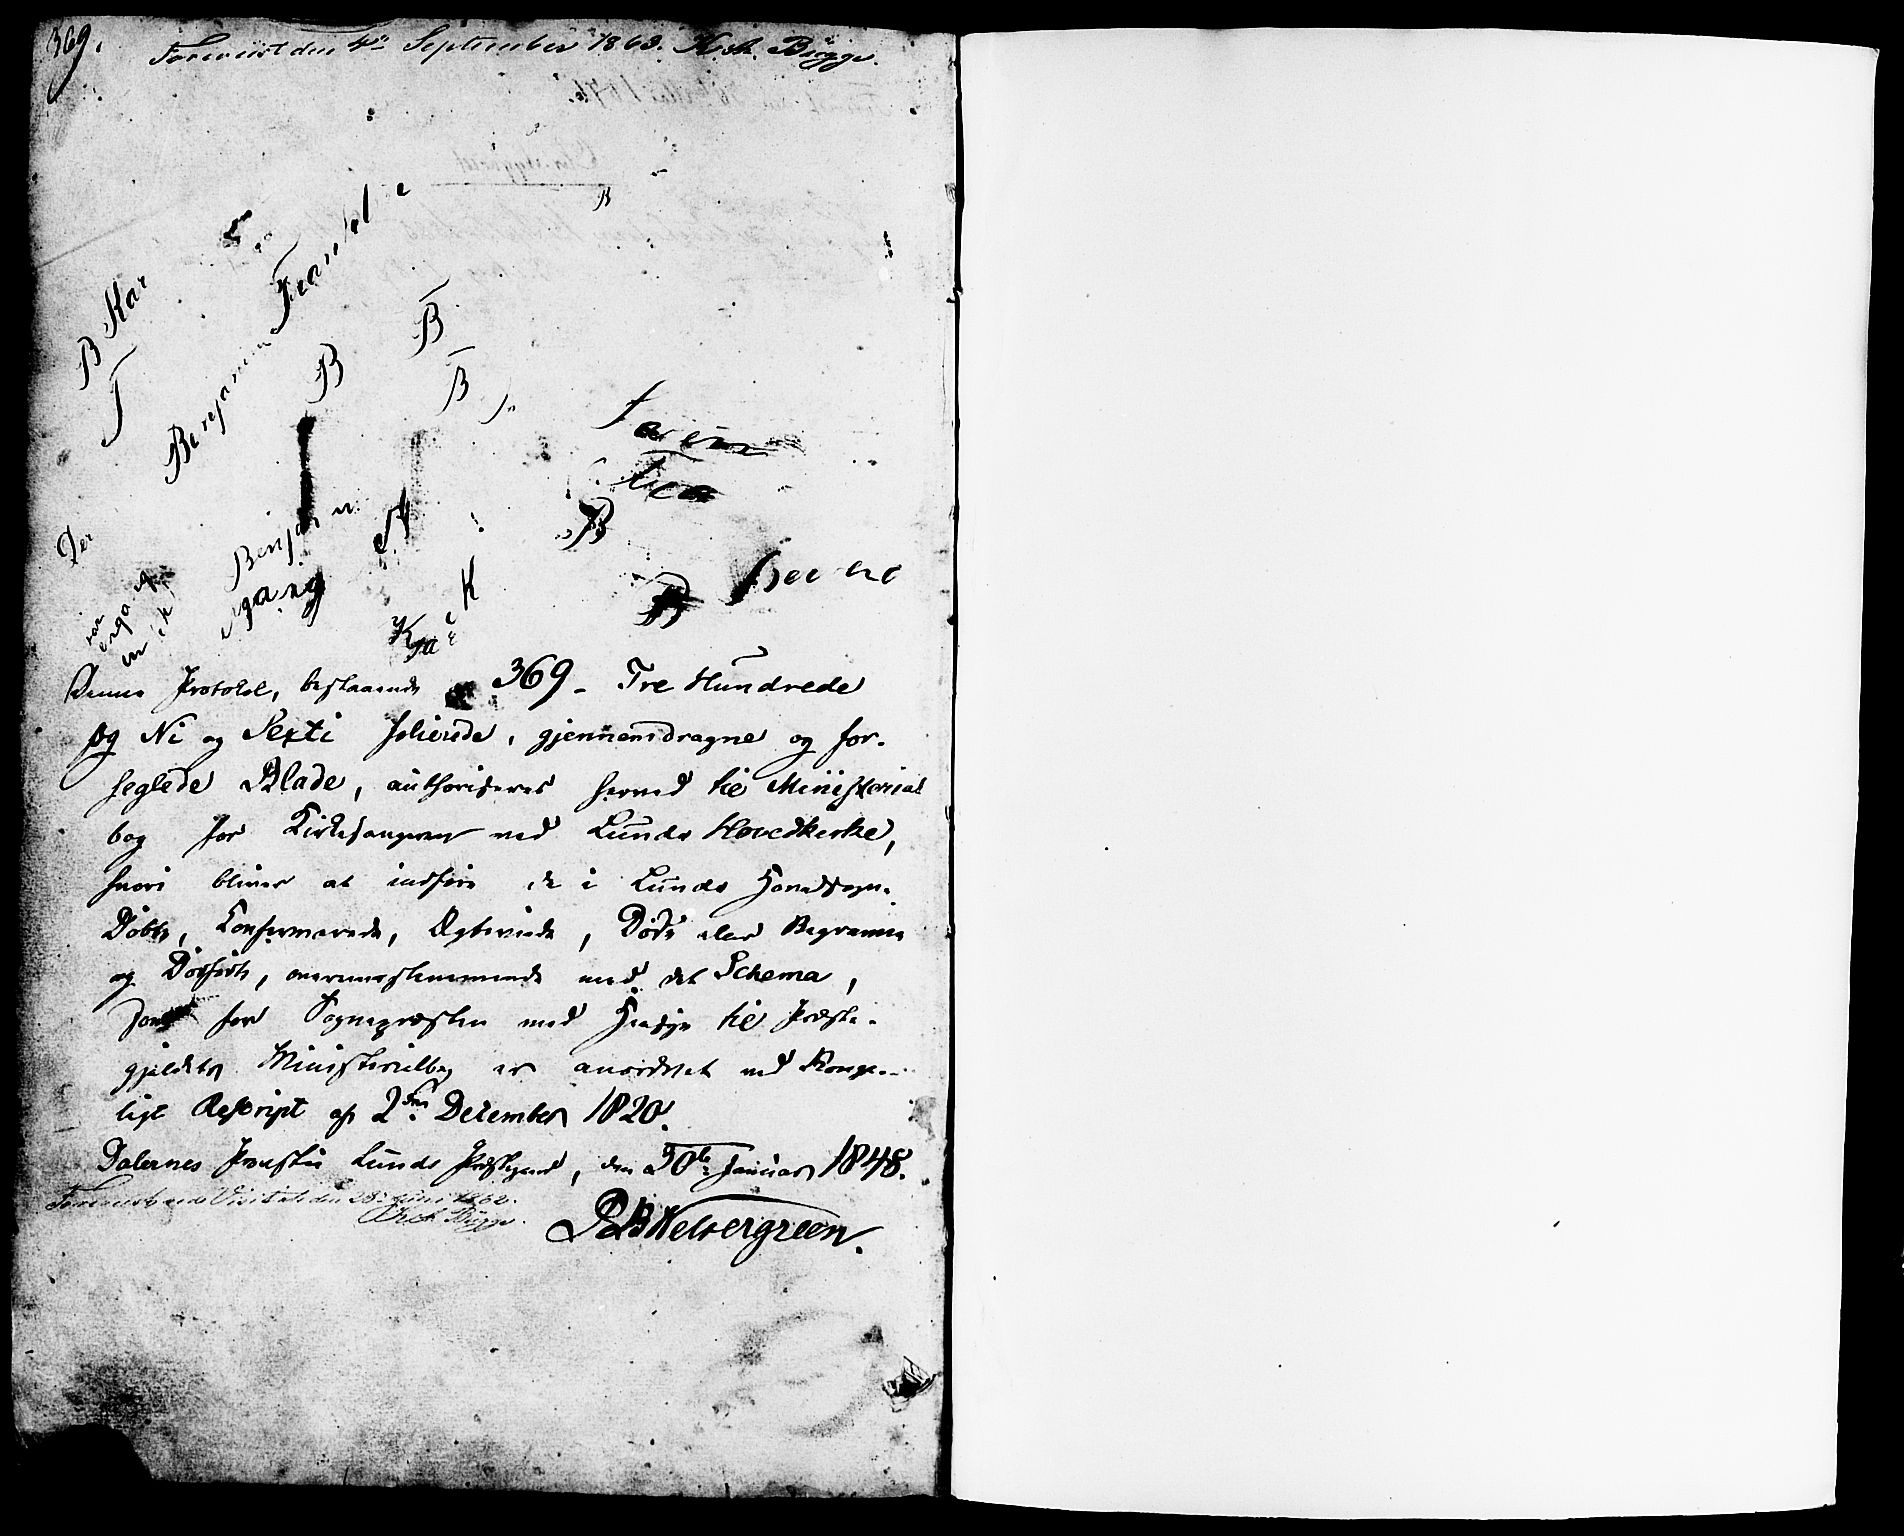 369.
Foreviist den 4de September 1863. Kr. Bugge.
B
Kar
Frankel e
B
B
T
Benjamin
B
B
Der
Benjamin
A
B
var
engang
en
egang
K
B
Denne Protokol, bestaaende af 369 - Tre Hundrede
og Ni og Sexti folierede, gjennemdragne og for-
seglede Blade, authoriseres herved til Ministerial
bog for Kirkesangeren ved Lunds Hovedkirke,
hvori bliver at indføre de i Lunds Hovedsogn
Døbte, Confirmerede, Ægteviede, Døde eller Begravne
og Dødfødte, overeensstemmende med det Schema,
som for Sognepræsten med Hensyn til Præste-
gjeldets Ministerialbog er anordnet ved Konge-
ligt Rescript af 2den December 1820.
Dalernes Provstie Lunds Præstegaard, den 30te Januar 1848.
Foreviist ved Visitats den 28 Juni 1862.
Bugge.